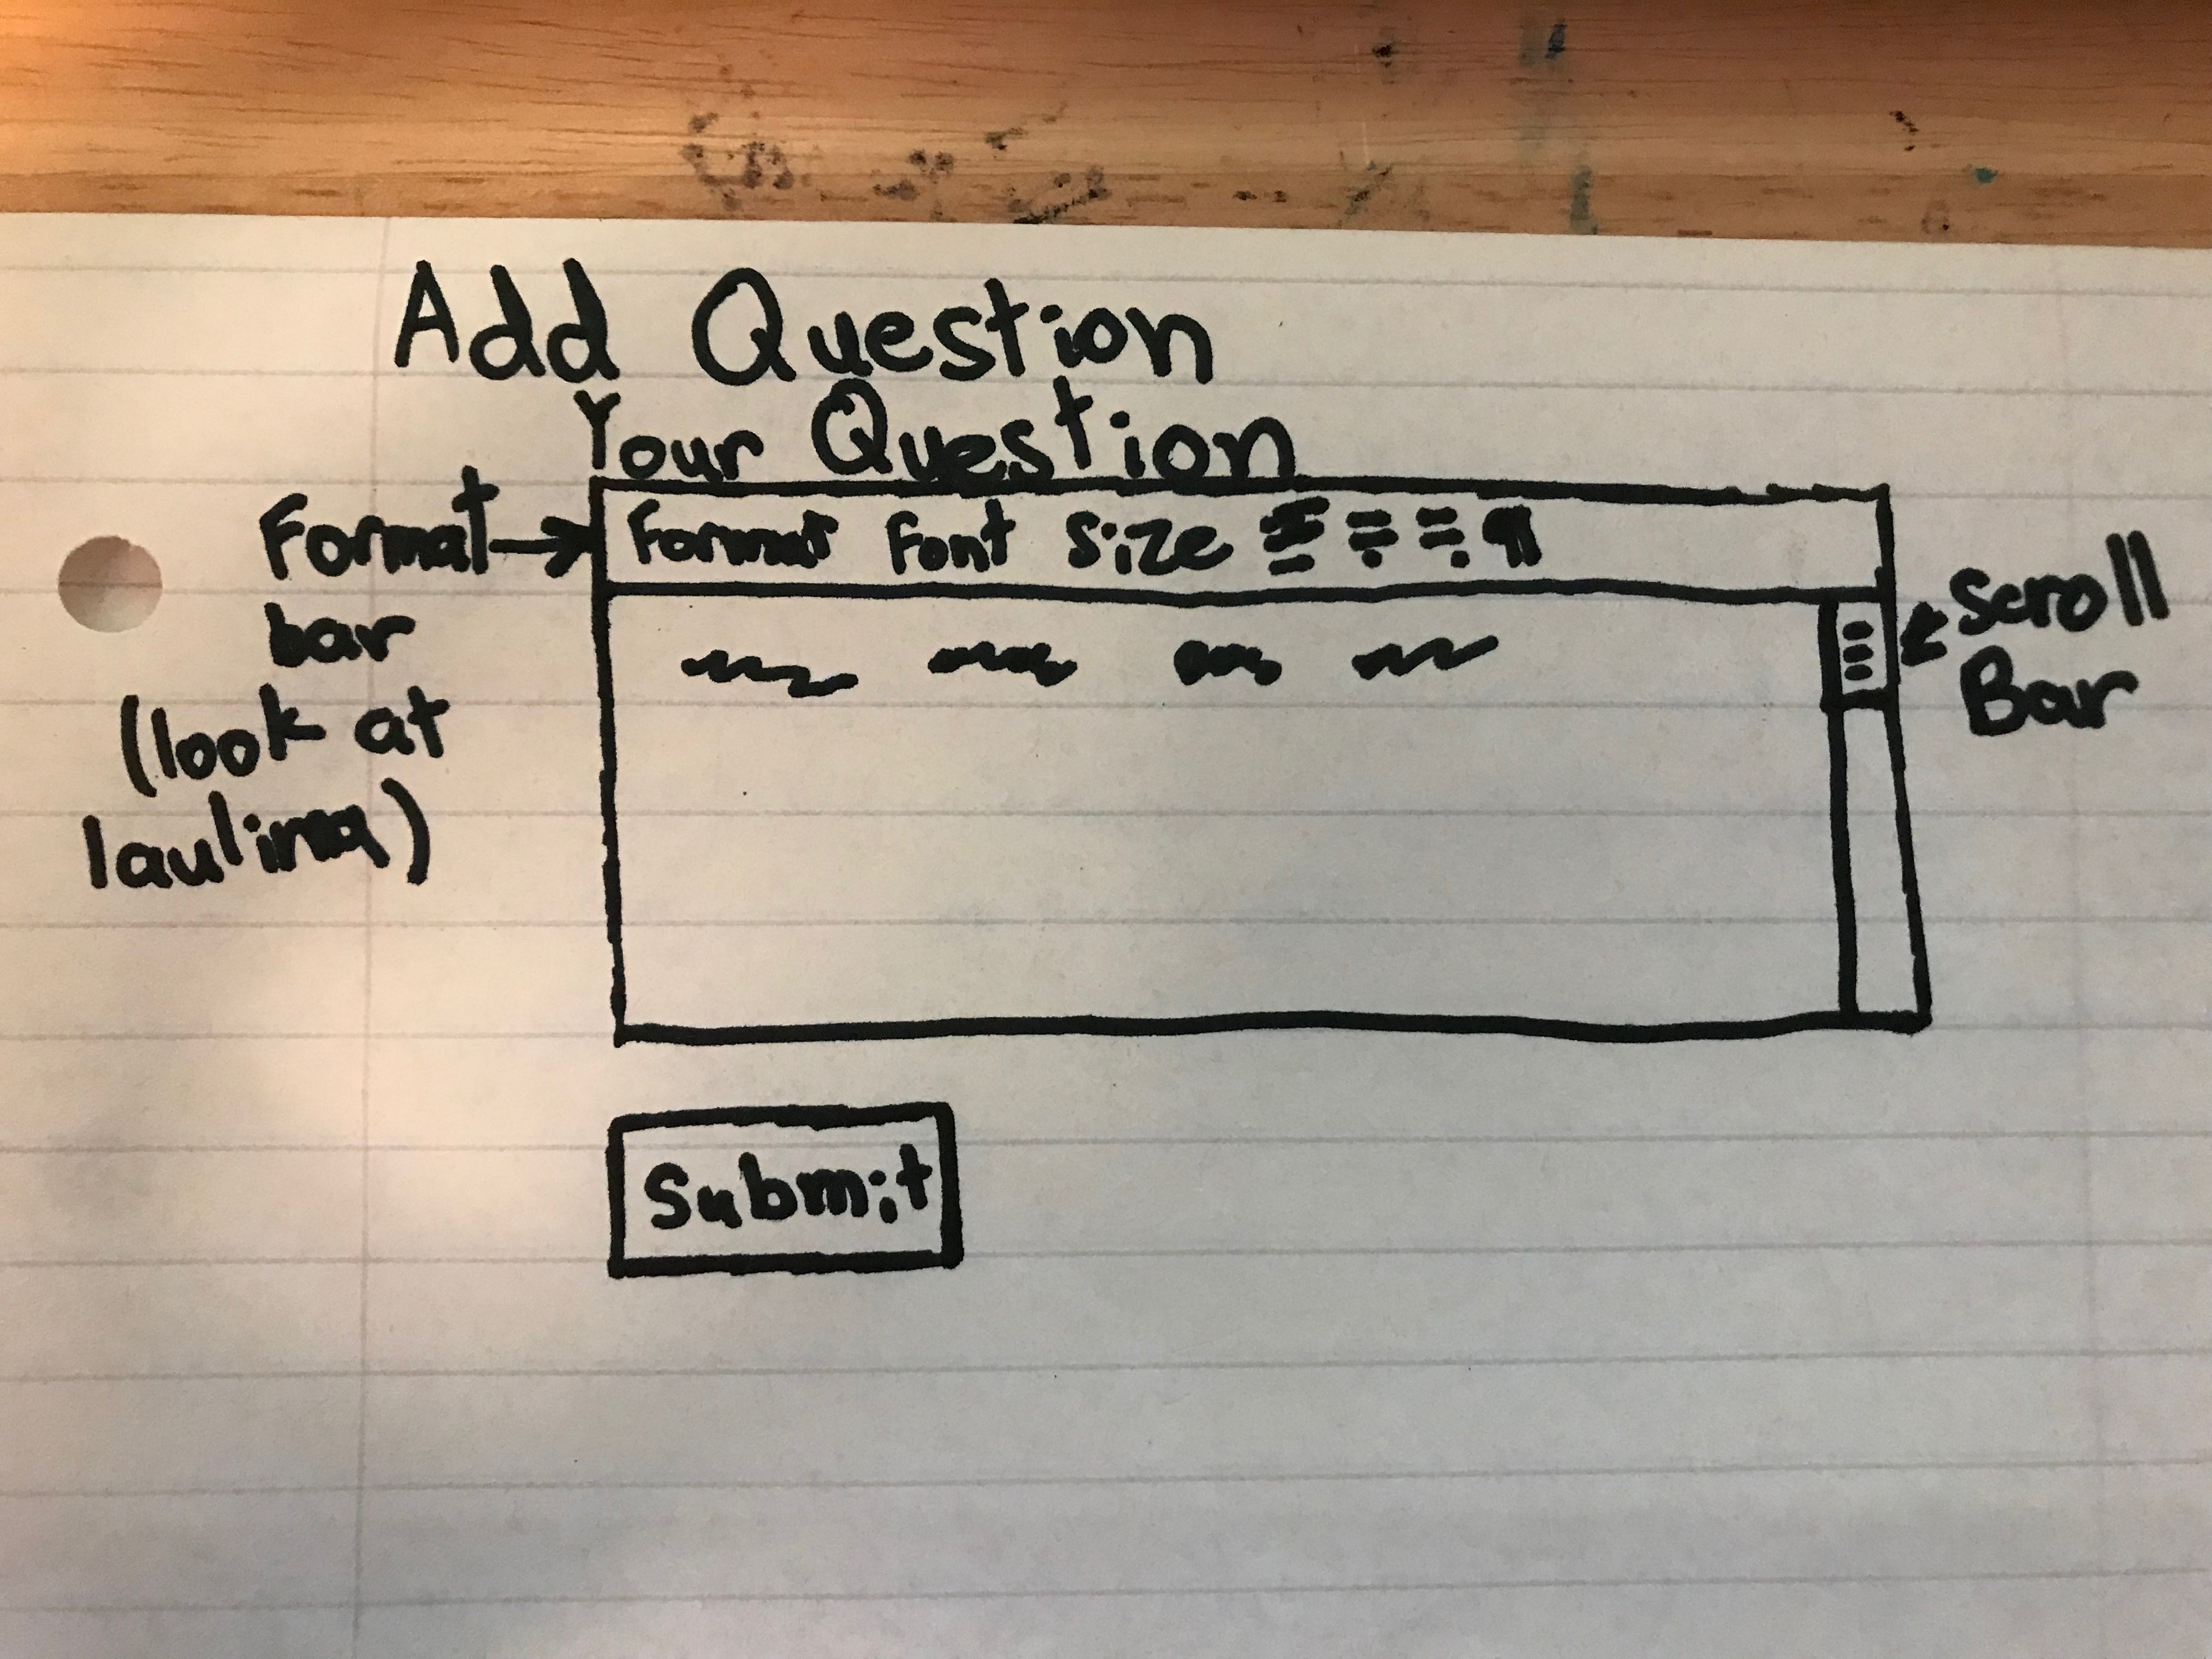 Add Question
Your Question
Format
bar
(look at
laulima)
Format Font Size
Scroll
Bar
Submit